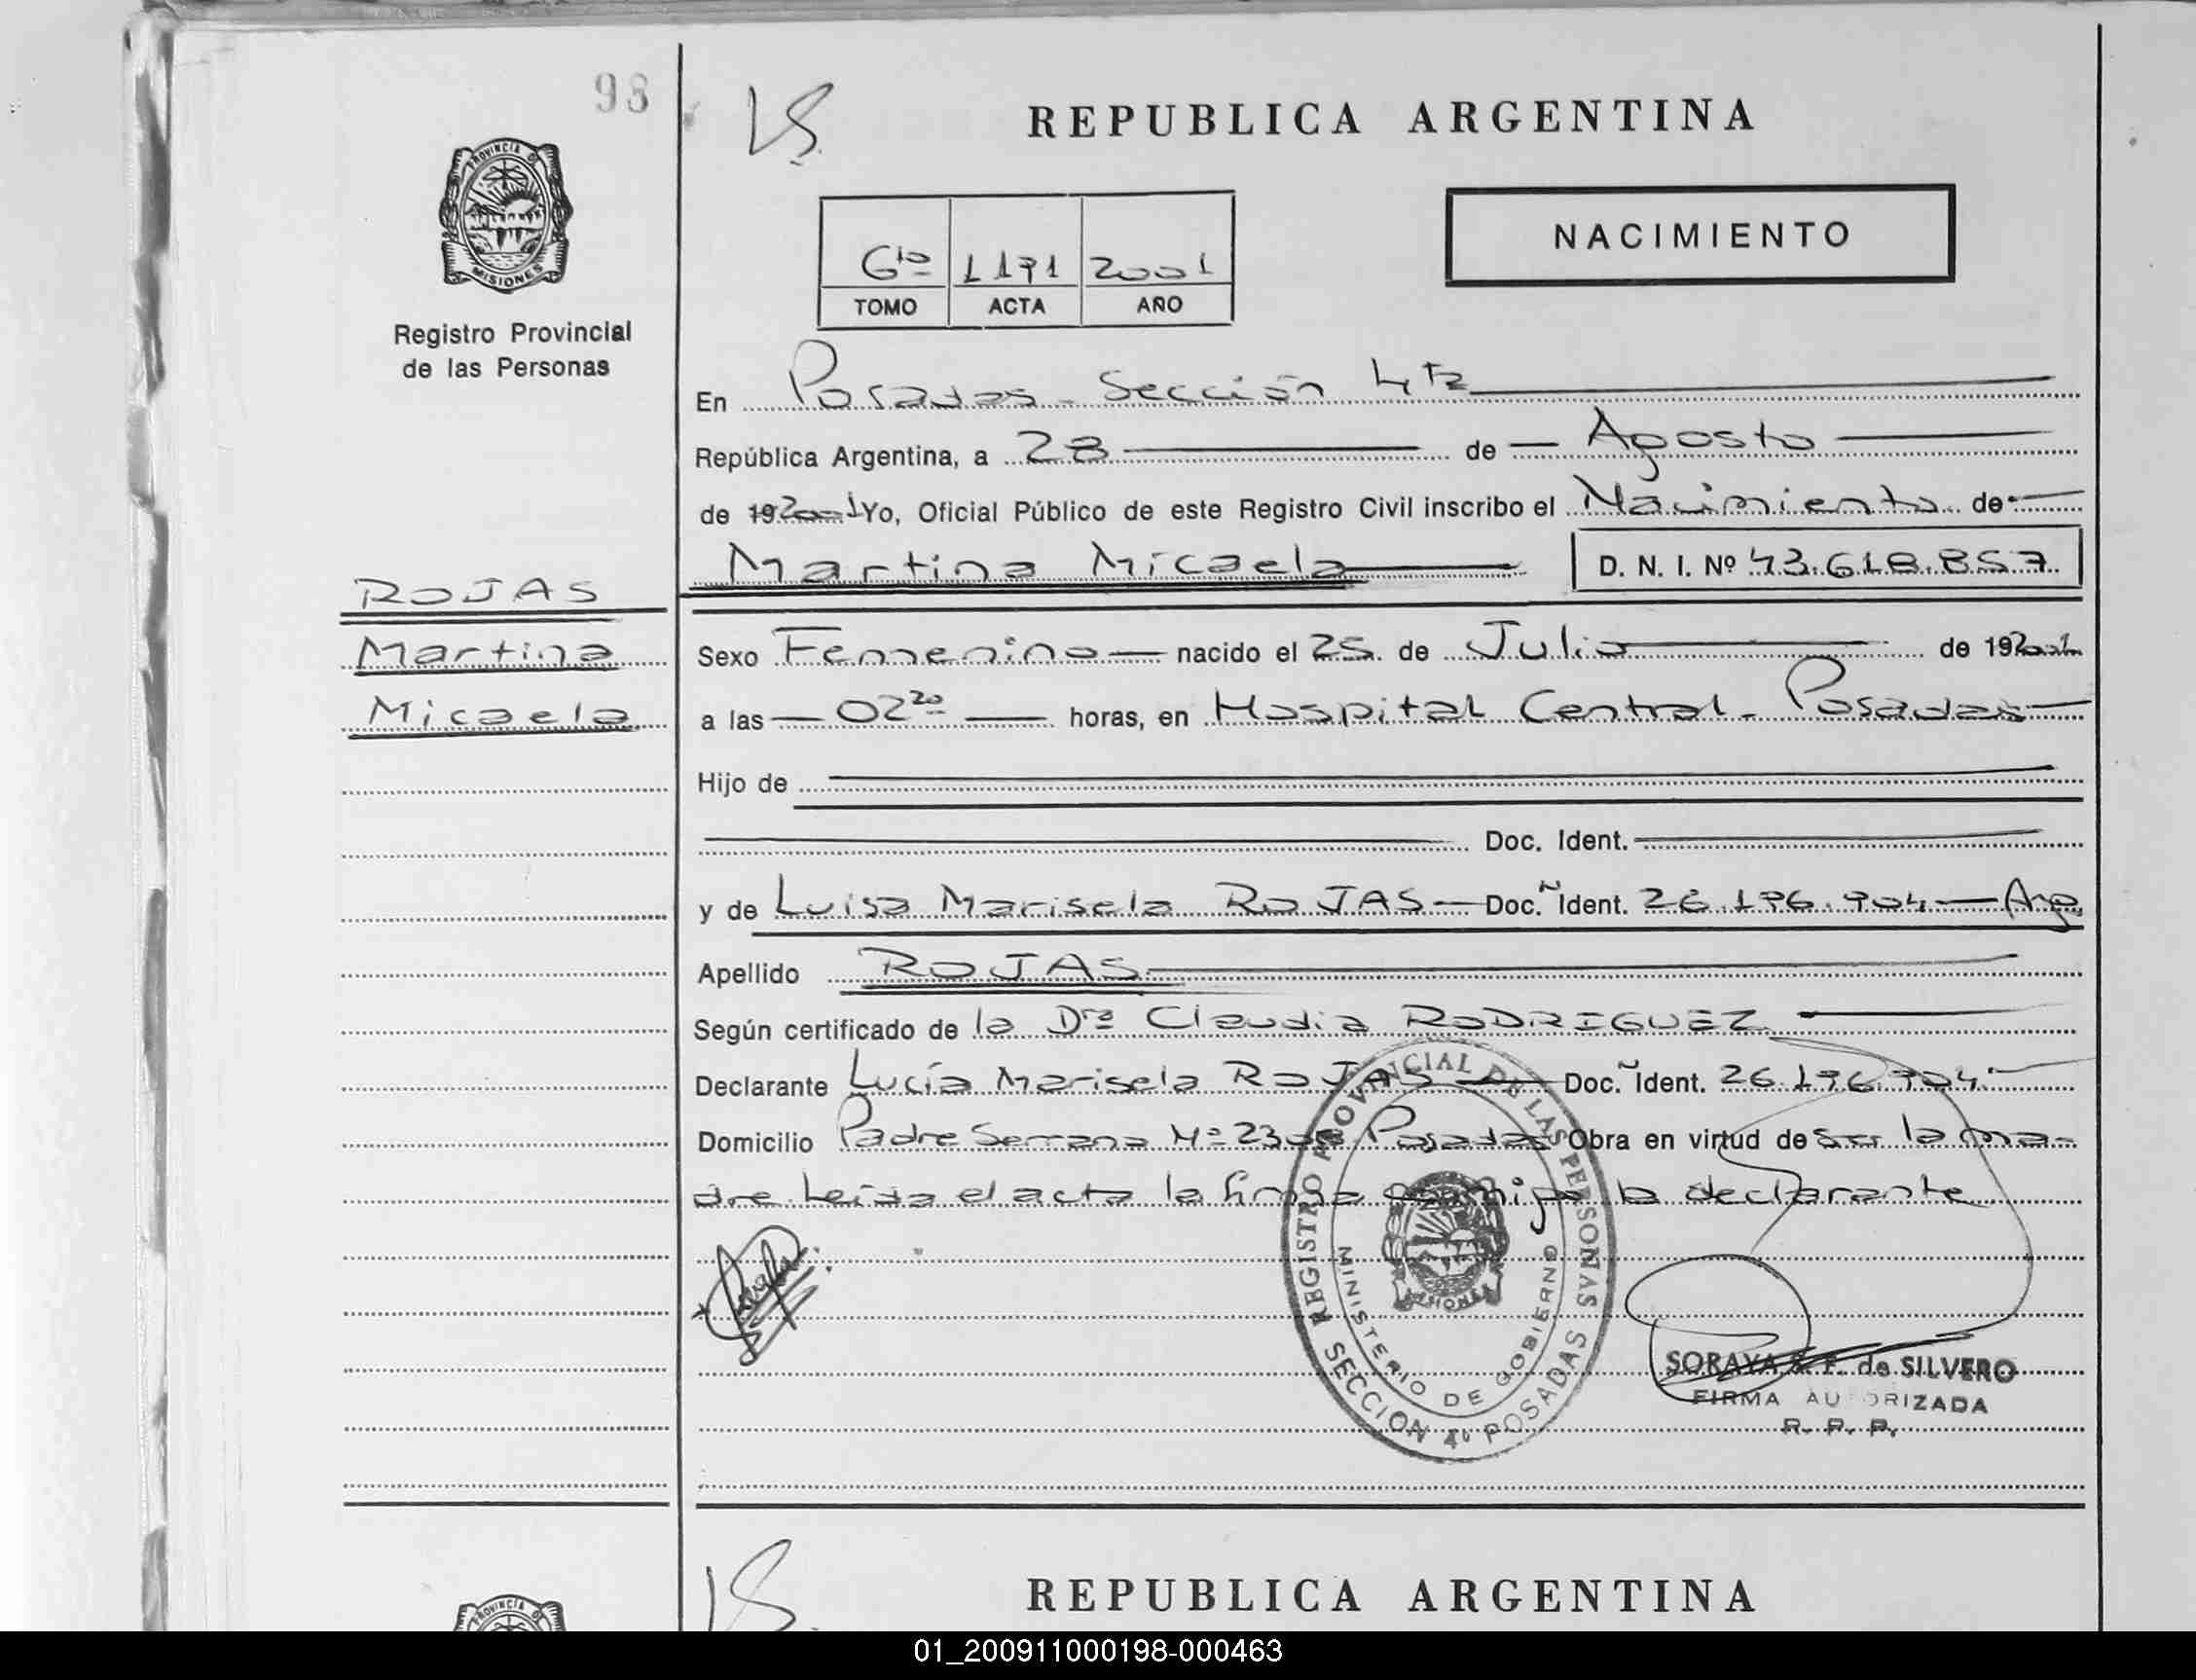 98
REPUBLICA ARGENTINA
PROVINCIA DE
MISIONES
Registro Provincial
de las Personas
NACIMIENTO
6to 1171 2001
TOMO ACTA AÑO
En Posadas - Sección 4ta
República Argentina, a 28 de Agosto
de 192001 Yo, Oficial Público de este Registro Civil inscribo el Nacimiento de
Martina Micaela D. N. I. Nº 43.618.857
ROJAS
Martina
Micaela
Sexo Femenino nacido el 25 de Julio de 192001
a las 02 20 horas, en Hospital Central - Posadas
Hijo de
Doc. Ident.
y de Luisa Marisela ROJAS Doc. Ident. 26.196.904 Arg.
Apellido ROJAS
Según certificado de la Dra Claudia RODRIGUEZ
Declarante Lucía Marisela ROJAS Doc. Ident. 26.196.904
Domicilio Padre Serrana Nº Posadas Obra en virtud de ser la ma-
dre Leída el acta la firma conmigo la declarante
REGISTRO PROVINCIAL DE LAS PERSONAS
MINISTERIO DE GOBIERNO
SECCION 4º POSADAS
SORAYA de SILVERO
FIRMA AUTORIZADA
R. P. P.
REPUBLICA ARGENTINA
PROVINCIA DE
01_200911000198-000463